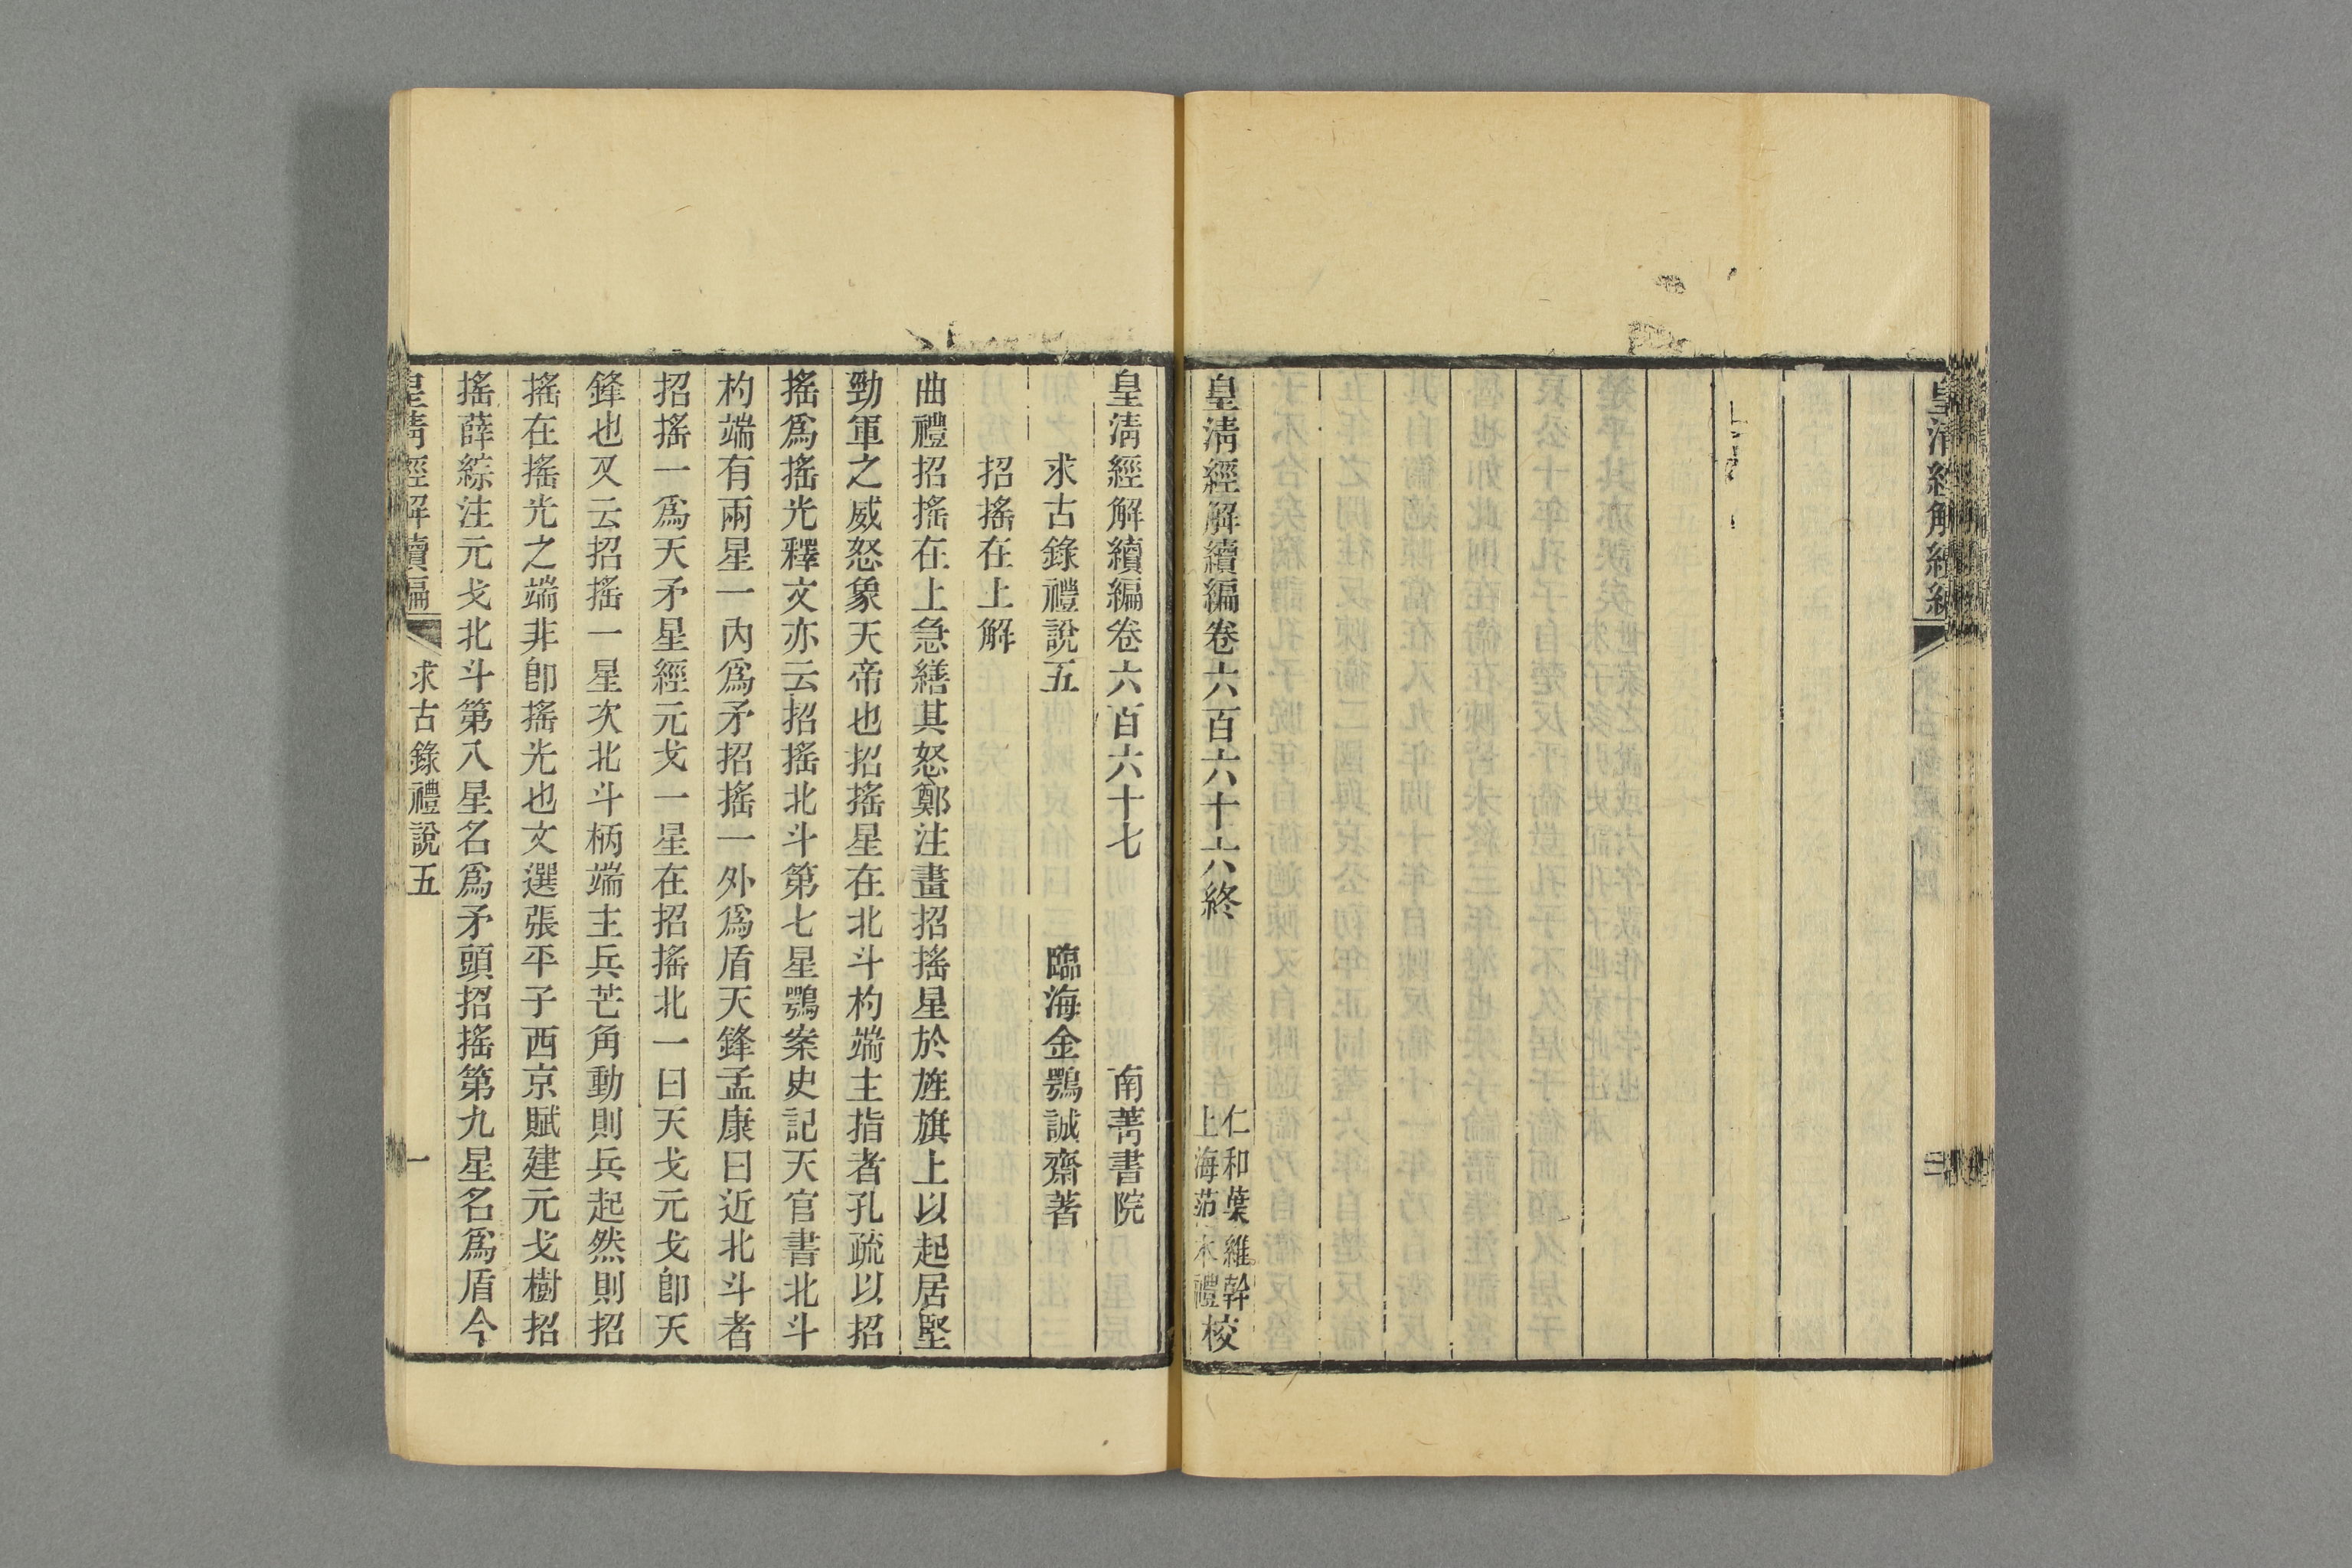 皇清經解續編卷六百六十六終
仁和葉維幹
上海范本禮校
皇清經解續編卷六百六十七 南菁書院
求古錄禮說五 臨海金鶚誠齋著
招搖在上解
曲禮招搖在上急繕其怒鄭注畫招搖星於旌旗上以起居堅
勁軍之威怒象天帝也招搖星在北斗杓端主指者孔疏以招
搖爲搖光釋文亦云招搖北斗第七星鶚案史記天官書北斗
杓端有兩星一內爲矛招搖一外爲盾天鋒孟康曰近北斗者
招搖一爲天矛星經元戈一星在招搖北一曰天戈元戈卽天
鋒也又云招搖一星次北斗柄端主兵芒角動則兵起然則招
搖在搖光之端非卽搖光也文選張平子西京賦建元戈樹招
搖薛綜注元戈北斗第八星名爲矛頭招搖第九星名爲盾今
皇清經解續編 求古錄禮說五 一